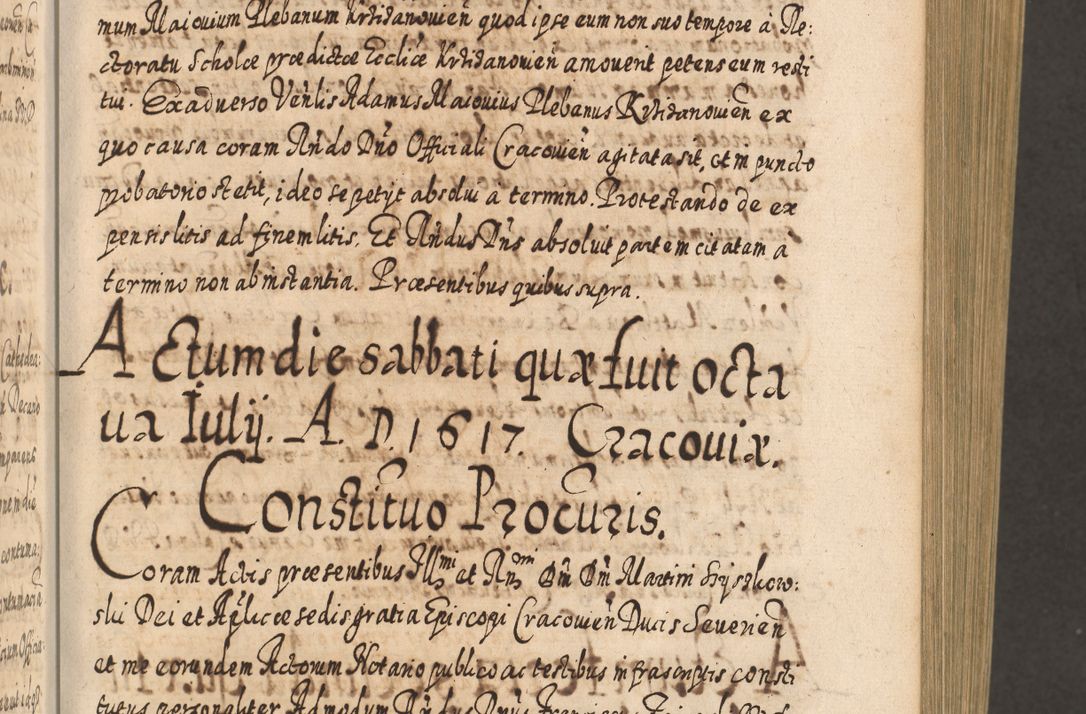 mum Maiouium Plebanum Krzizanouien̄ quod ipse eum non suo tempore a Re:
ctoratu Scholæ prædictæ Eccliæ Krzizanouien̄ amouerit petens eum resti
tui. Ex aduerso Ven̄lis Adamus Maiouius Plebanus Krzizanouien̄ ex
quo causa coram Rn̄do Dn̄o Officiali Cracouien̄ agitata sit, et in puncto
probatorio stetit, ideo se petijt absolui a termino. Protestando de ex
pensis litis ad finem litis. Et Rn̄dus Dn̄s absoluit partem citatam a
termino non ab instantia. Præsentibus quibus supra.
Actum die sabbati quæ fuit octa
ua Iulij. A. D. 1617. Cracouiæ.
Constituo Procuris.
Coram Actis præsentibus Illmi et Rn̄mi Dn̄i Dn̄i Martini Szyszkow:
ski Dei et Aplicæ sedis gratia Episcopi Cracouien̄ Ducis Seuerien̄
et me eorundem Actorum Notario publico ac testibus infrascriptis consti
tutus personaliter Admodum Rn̄dus Dn̄us